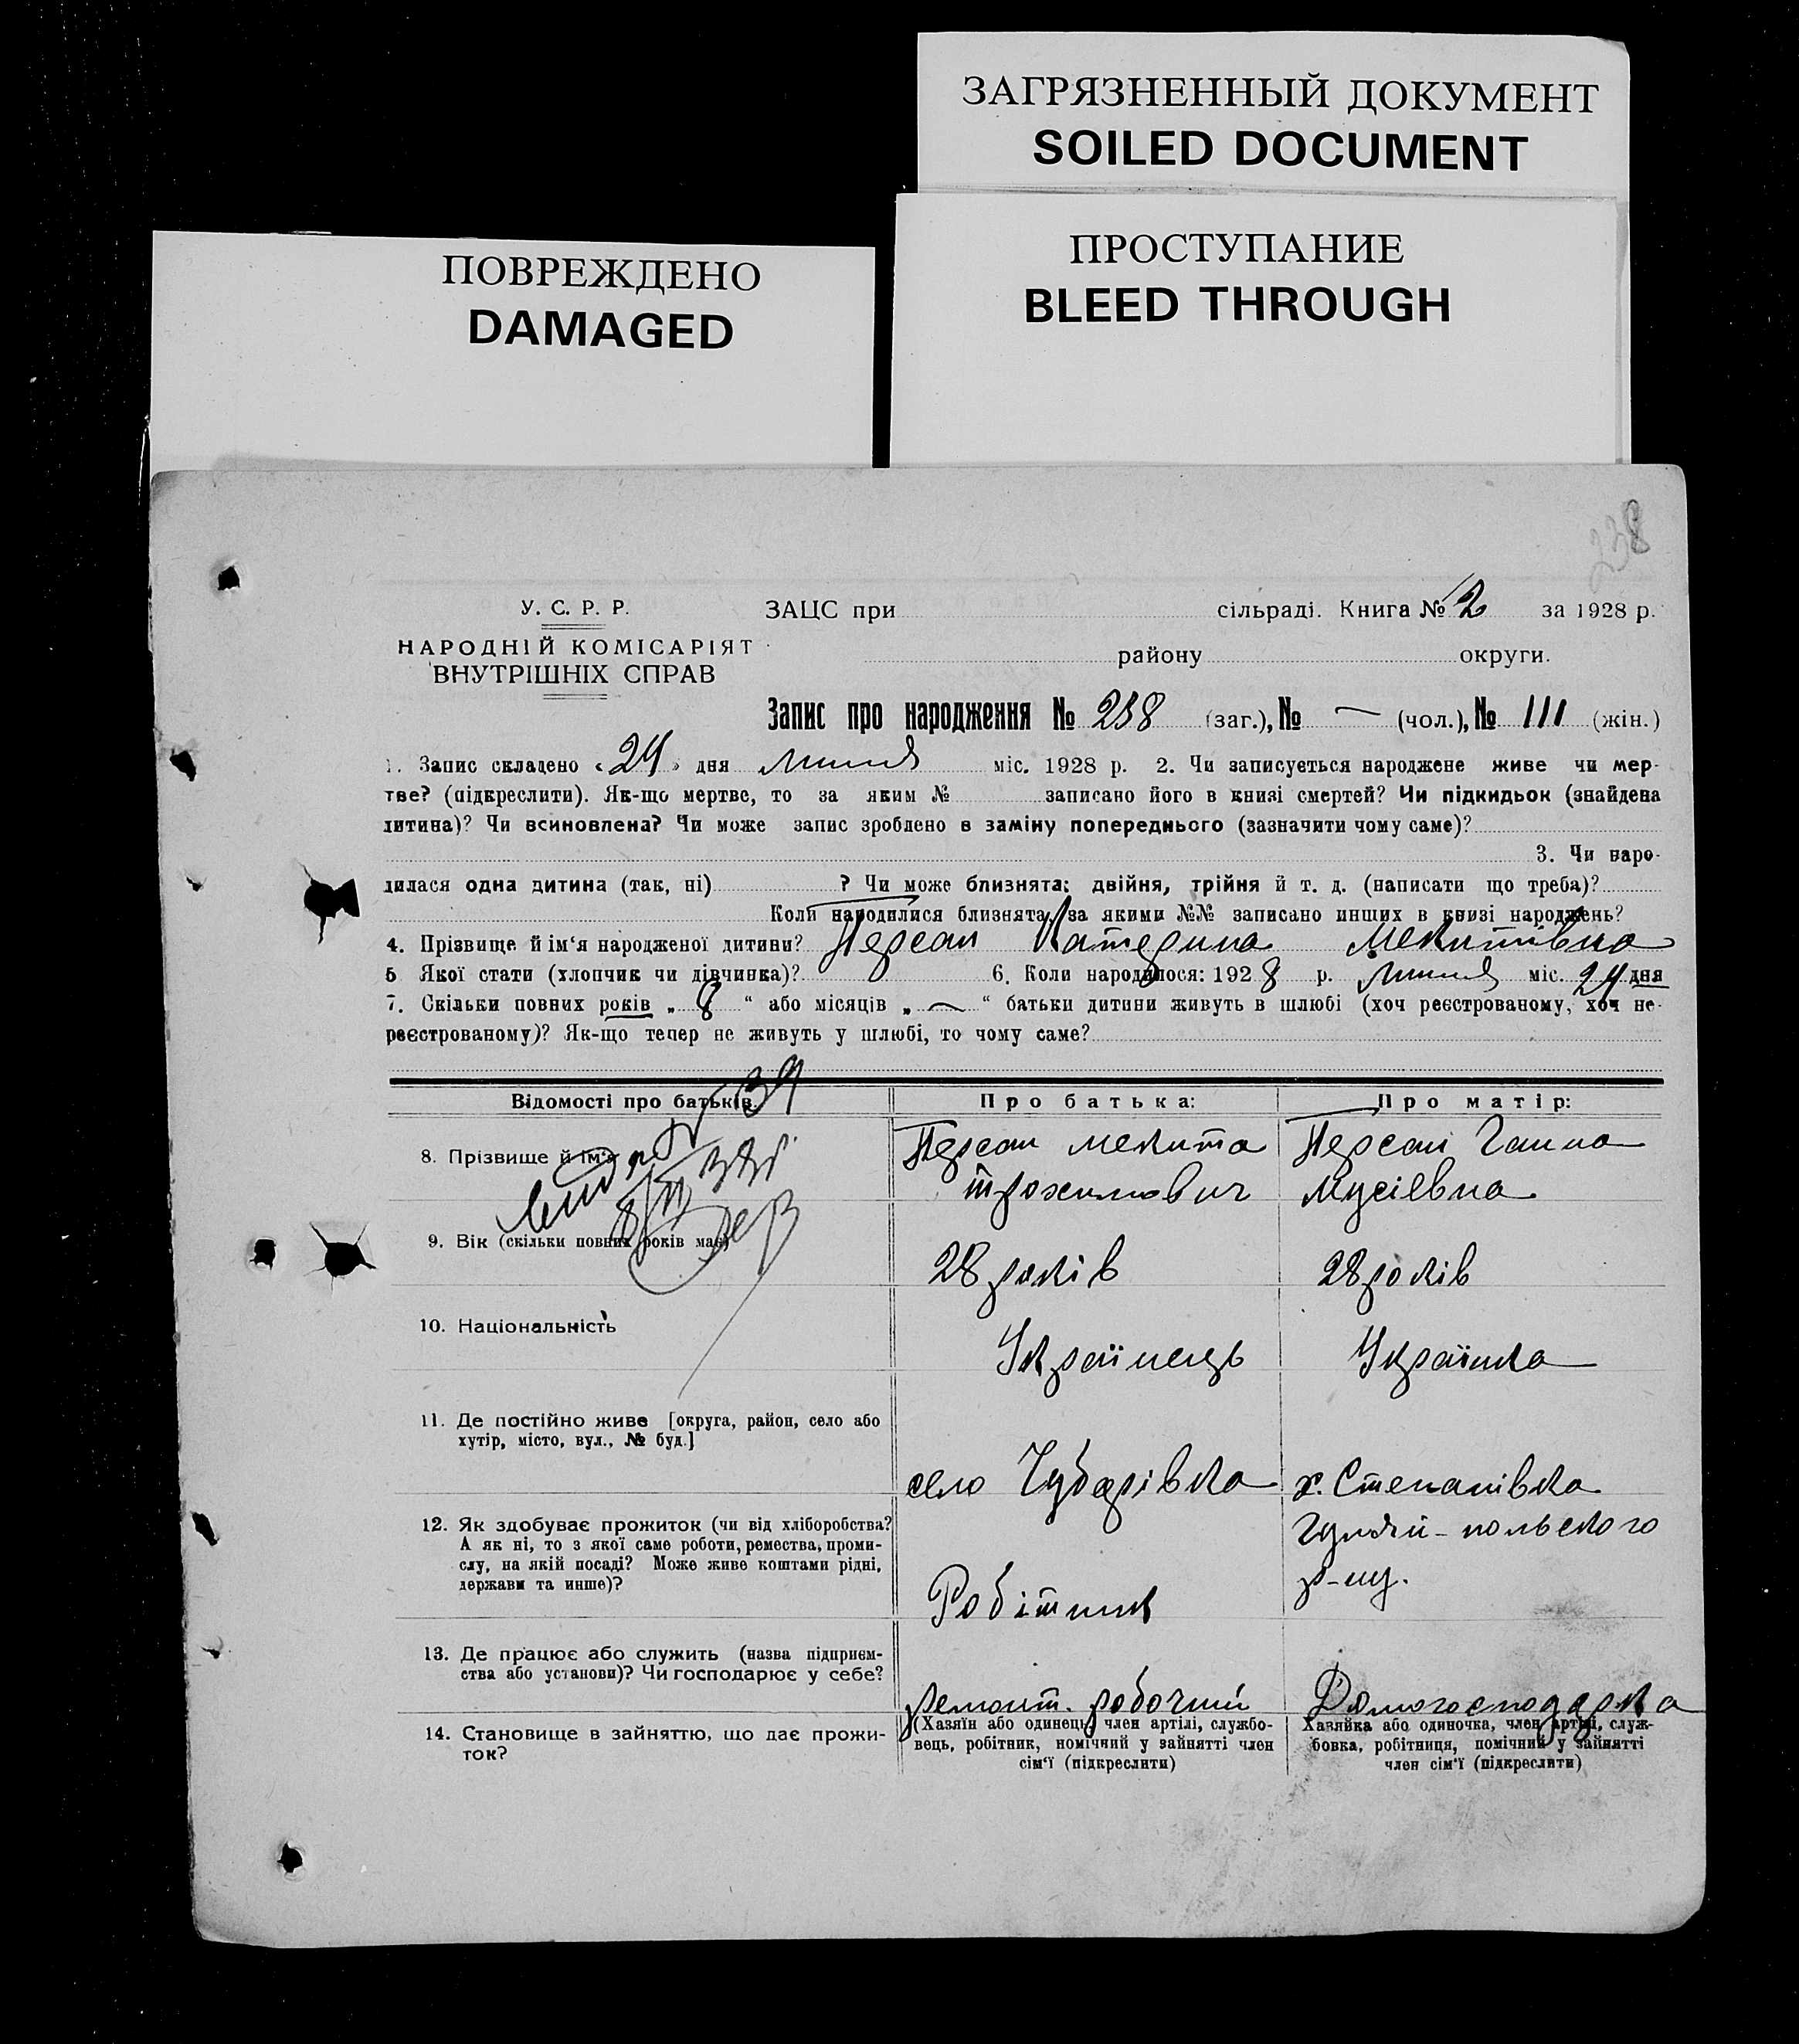 ЗАГРЯЗНЕННЫЙ ДОКУМЕНТ
SOILED DOCUMENT
ПОВРЕЖДЕНО
DAMAGED
ПРОСТУПАНИЕ
BLEED THROUGH
238
У. С. Р. Р.
НАРОДНІЙ КОМІСАРІЯТ
ВНУТРІШНІХ СПРАВ
ЗАЦС при сільраді. Книга № 2 за 1928 р.
району округи.
Запис про народження № 238 (заг.), № — (чол.), № 111 (жін.)
1. Запис складено « 24 » дня липня міс. 1928 р. 2. Чи записується народжене живе чи мер-
тве? (підкреслити). Як-що мертве, то за яким № записано його в книзі смертей? Чи підкидьок (знайдена
дитина)? Чи всиновлена? Чи може запис зроблено в заміну попереднього (зазначити чому саме)?
3. Чи наро-
дилася одна дитина (так, ні) ? Чи може близнята: двійня, трійня й т. д. (написати що треба)?
Коли народилися близнята, за якими №№ записано инших в книзі народжень?
4. Прізвище й ім‘я народженої дитини? Персан Катерина Мекитівна
5 Якої стати (хлопчик чи дівчинка)? 6. Коли народилося: 1928 р. липня міс. 24 дня
7. Скільки повних років „ 8 “ або місяців „ — “ батьки дитини живуть в шлюбі (хоч реєстрованому, хоч не-
реєстрованому)? Як-що тепер не живуть у шлюбі, то чому саме?
Відомості про батьків. Про батька: Про матір:
8. Прізвище й ім‘я Персан Мекита Персан Ганна
Трохимович Мусіевна
9. Вік (скільки повних років має)
28 років 28 років
10. Національність
Українець Українка
11. Де постійно живе [округа, район, село або
хутір, місто, вул., № буд.]
село Чубарівка х. Степанівка
12. Як здобуває прожиток (чи від хліборобства? Гуляй-польского
А як ні, то з якої саме роботи, ремества, проми-
слу, на якій посаді? Може живе коштами рідні, р-ну.
держави та инше)?
Робітник
13. Де працює або служить (назва підприєм-
ства або установи)? Чи господарює у себе?
ремонт. робочий Домогосподарка
14. Становище в зайняттю, що дає прожи-
ток?
(Хазяїн або одинець, член артілі, службо-
вець, робітник, помічний у зайнятті член
сім‘ї (підкреслити)
Хазяйка або одиночка, член артілі, служ-
бовка, робітниця, помічний у зайнятті
член сім‘ї (підкреслити)